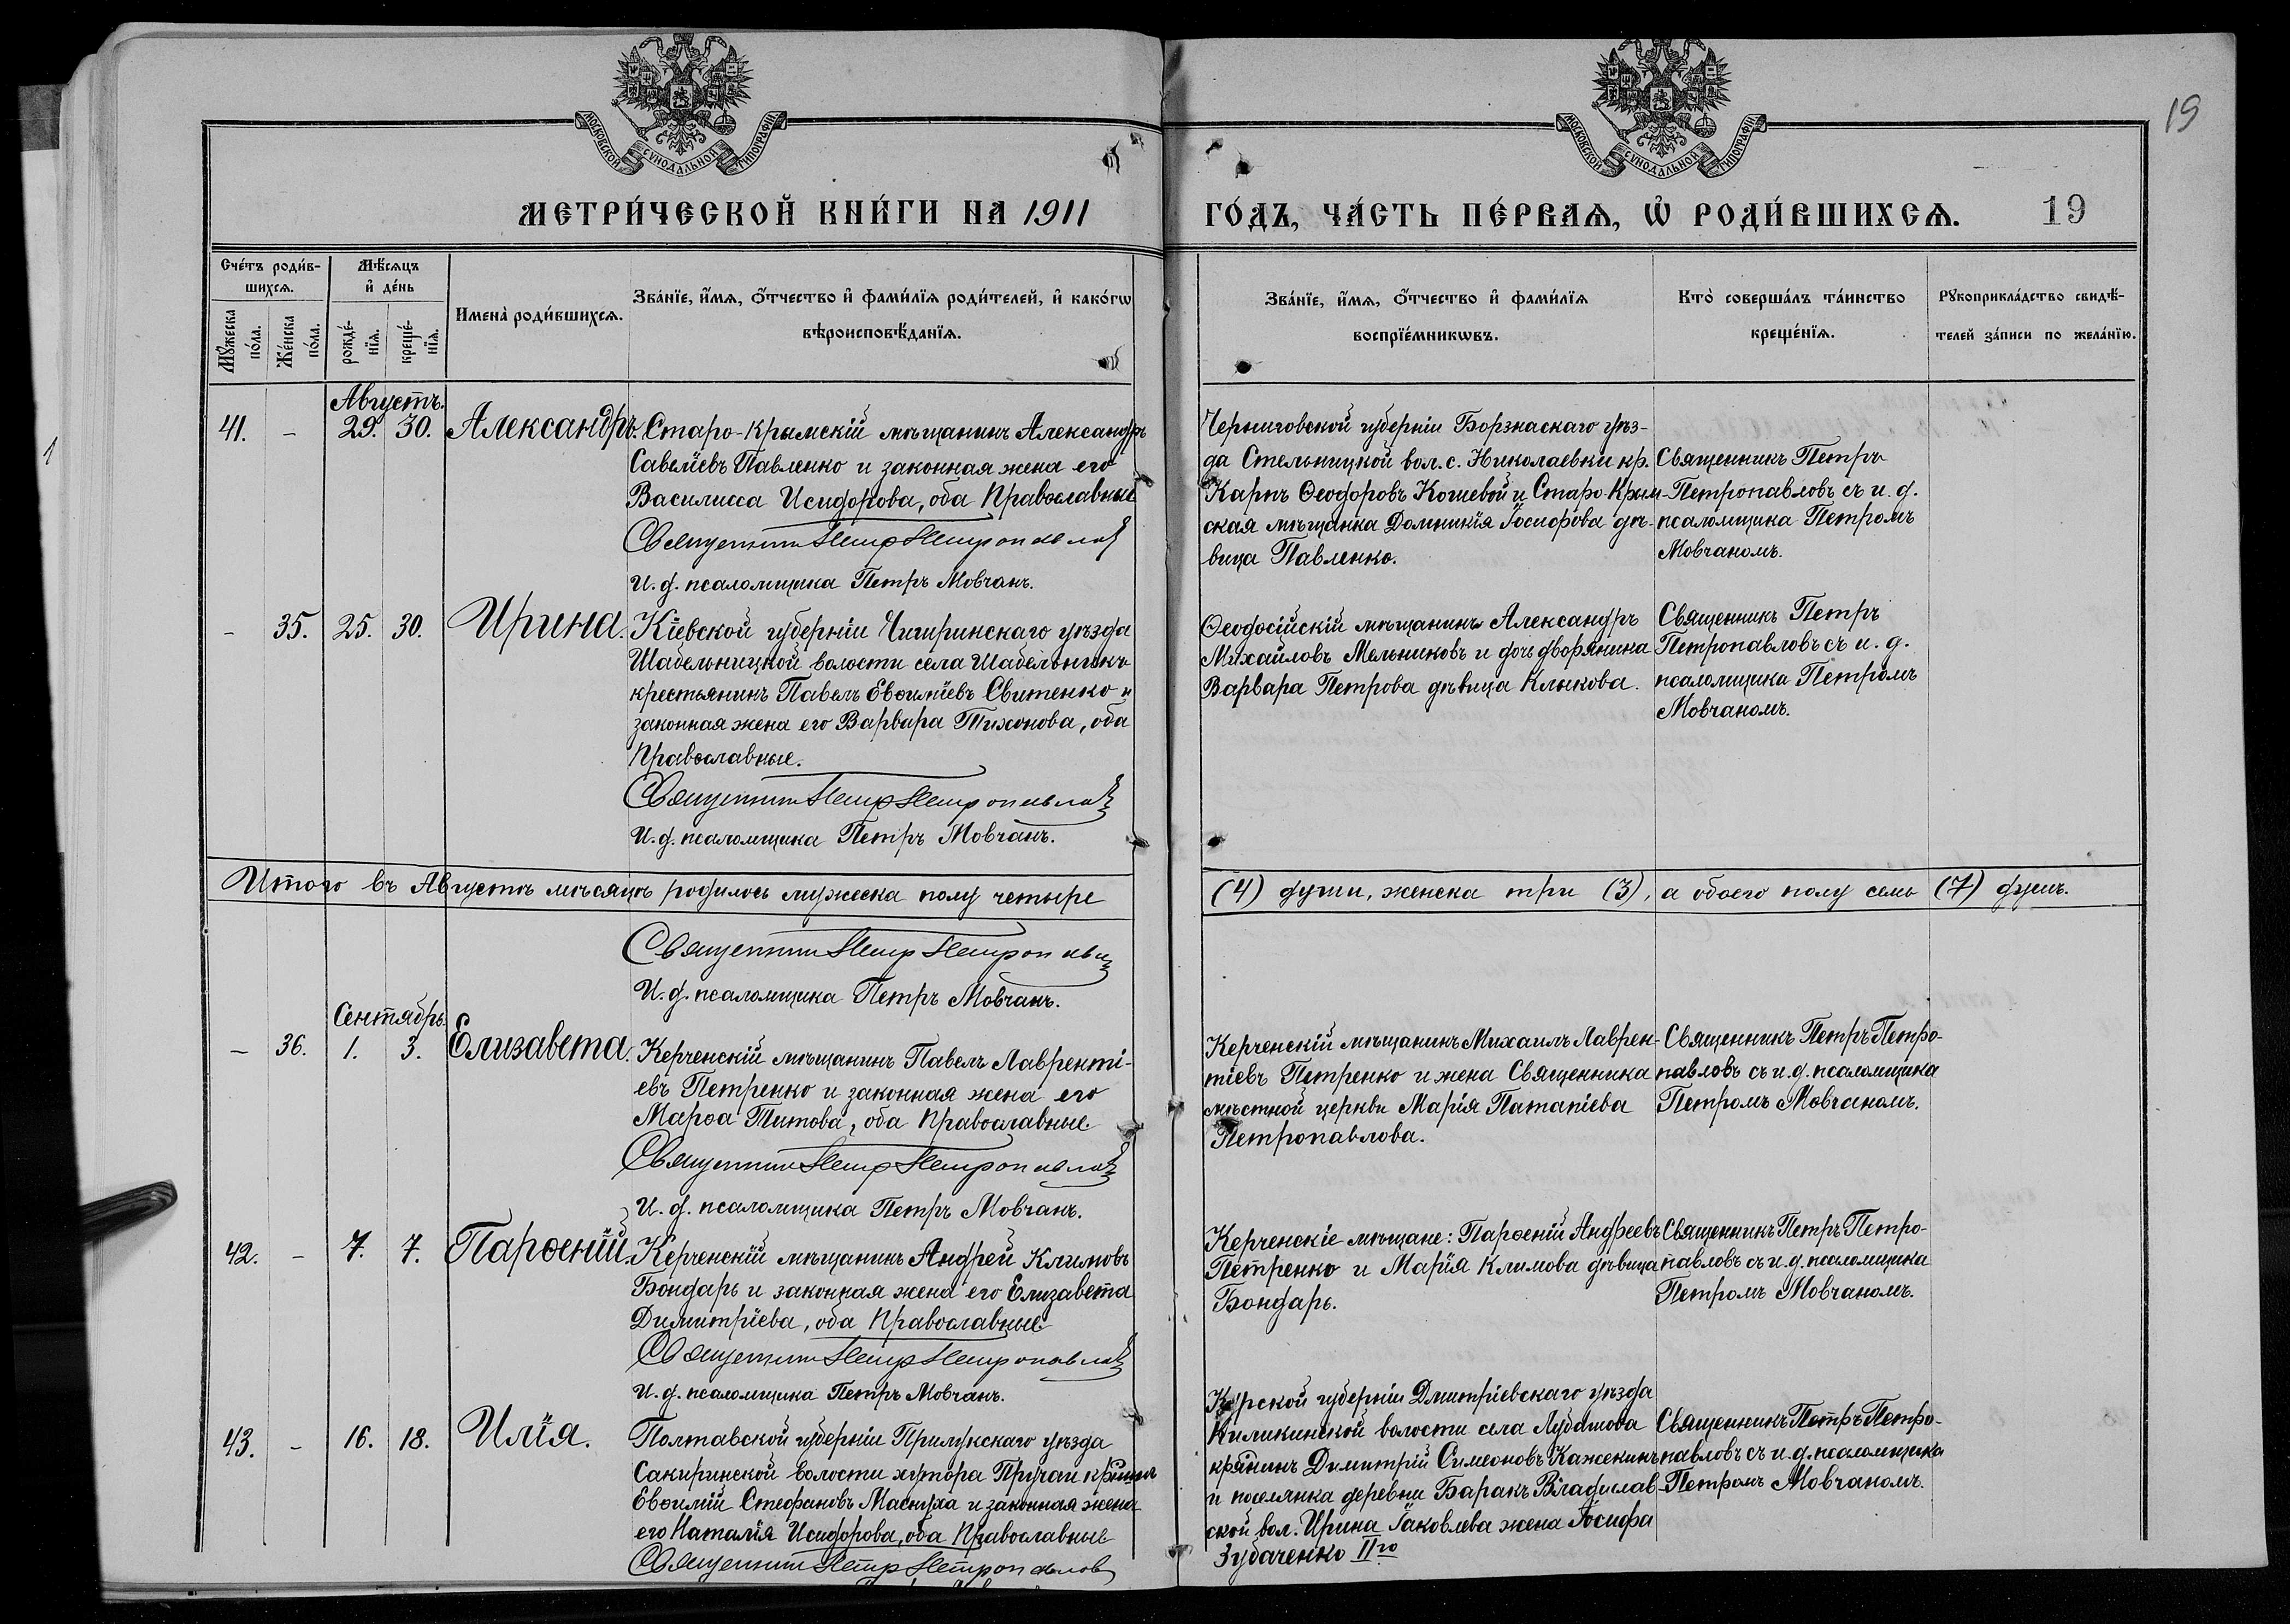 МОСКОВСКОЙ СУНОДАЛЬНОЙ ТИПОГРАФІИ
МОСКОВСКОЙ СУНОДАЛЬНОЙ ТИПОГРАФІИ
19
МЕТРИ́ЧЕСКОЙ КНИ́ГИ НА 1911
ГО́ДЪ, ЧА́СТЬ ПЕ́РВАѦ, Ѡ҆ РОДИ́ВШИХСѦ.
19
Сче́тъ роди́в-
шихсѧ.
Мѣ́сѧцъ
и҆ де́нь
Мꙋ́жеска
по́ла.
Же́нска
по́ла.
рожде́-
нїѧ.
креще́-
нїѧ.
Имена̀ роди́вшихсѧ.
Зва́нїе, и҆́мѧ, ѻ҆́тчество и҆ фами́лїѧ роди́телей, и҆ како́гѡ
вѣроисповѣ́данїѧ.
Зва́нїе, и҆́мѧ, ѻ҆́тчество и҆ фами́лїѧ
воспрїе́мникѡвъ.
Кто̀ соверша́лъ та́инство
креще́нїѧ.
Рꙋкоприкла́дство свидѣ́-
телей за́писи по жела́нїю.
Августъ.
41. - 29. 30. Александръ.
Старо-Крымскій мѣщанинъ Александръ
Савеліевъ Павленко и законная жена его
Василисса Исидорова, оба Православные
Священникъ Петръ Петропавлов
И. д. псаломщика Петръ Мовчанъ.
Черниговской губерніи Борзнаскаго уѣз-
да Стельницкой вол. с. Николаевки кр.
Карпъ Ѳеодоровъ Кошевой и Старо-Крым-
ская мѣщанка Домникія Іосифова дѣ-
вица Павленко.
Священникъ Петръ
Петропавловъ съ и. д.
псаломщика Петромъ
Мовчаномъ.
- 35. 25. 30. Ирина.
Кіевской губерніи Чигиринскаго уѣзда
Шабельницкой волости села Шабельникъ
крестьянинъ Павелъ Евѳиміевъ Свитенко и
законная жена его Варвара Тихонова, оба
Православные.
Священникъ Петръ Петропавлов
И. д. псаломщика Петръ Мовчанъ.
Ѳеодосійскій мѣщанинъ Александръ
Михайловъ Мельниковъ и дочь дворянина
Варвара Петрова дѣвица Клыкова.
Священникъ Петръ
Петропавловъ съ и. д.
псаломщика Петромъ
Мовчаномъ.
Итого въ Августѣ мѣсяцѣ родилось мужеска полу четыре
(4) души, женска три (3), а обоего полу семь (7) душъ.
Священникъ Петръ Петропавлов
И. д. псаломщика Петръ Мовчанъ.
Сентябрь.
- 36. 1. 3. Елизавета.
Керченскій мѣщанинъ Павелъ Лаврентіѣ-
евъ Петренко и законная жена его
Марѳа Титова, оба Православные.
Священникъ Петръ Петропавлов
И. д. псаломщика Петръ Мовчанъ.
Керченскій мѣщанинъ Михаилъ Лаврен-
тіевъ Петренко и жена Священника
мѣстной церкви Марія Патапіева
Петропавлова.
Священникъ Петръ Петро-
павловъ съ и. д. псаломщика
Петромъ Мовчаномъ.
42. - 7. 7. Парѳеній.
Керченскій мѣщанинъ Андрей Климовъ
Бондарь и законная жена его Елизавета
Димитріева, оба Православные.
Священникъ Петръ Петропавлов
И. д. псаломщика Петръ Мовчанъ.
Керченскіе мѣщане: Парѳеній Андреевъ
Петренко и Марія Климова дѣвица
Бондарь.
Священникъ Петръ Петро-
павловъ съ и. д. псаломщика
Петромъ Мовчаномъ.
43. - 16. 18. Илія.
Полтавской губерніи Прилукскаго уѣзда
Сакиринской волости хутора Пручаи
Евѳимій Стефановъ Маснуха и законная жена
его Наталія Исидорова, оба Православные
Священникъ Петръ Петропавлов
Курской губерніи Дмитріевскаго уѣзда
волости села Лубашова
крянинъ Димитрій Симеоновъ Кажекинъ
и поселянка деревни Баракъ Владислав-
ской вол. Ирина Іаковлева жена Іосифа
Зубаченко IIго
Священникъ Петръ Петро-
павловъ съ и. д. псаломщика
Петромъ Мовчаномъ.